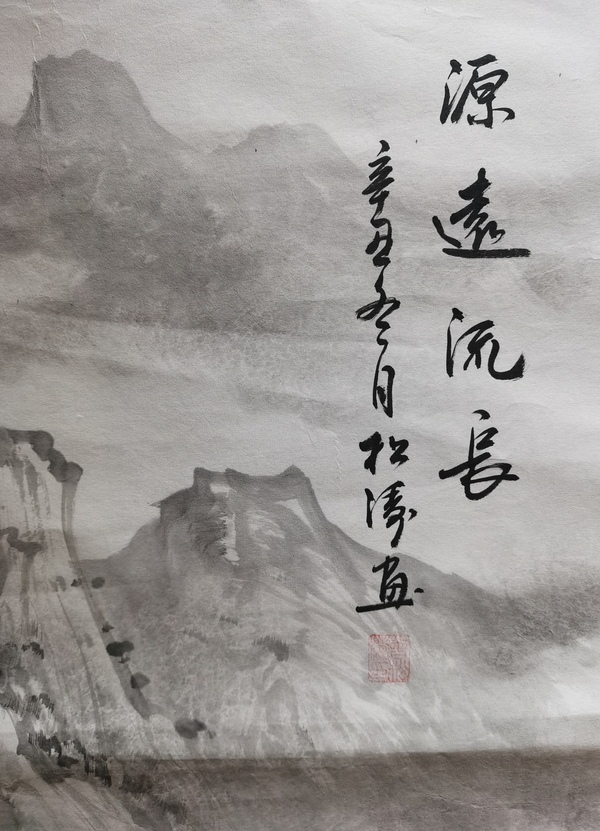 源遠流長
辛丑冬月松濤画